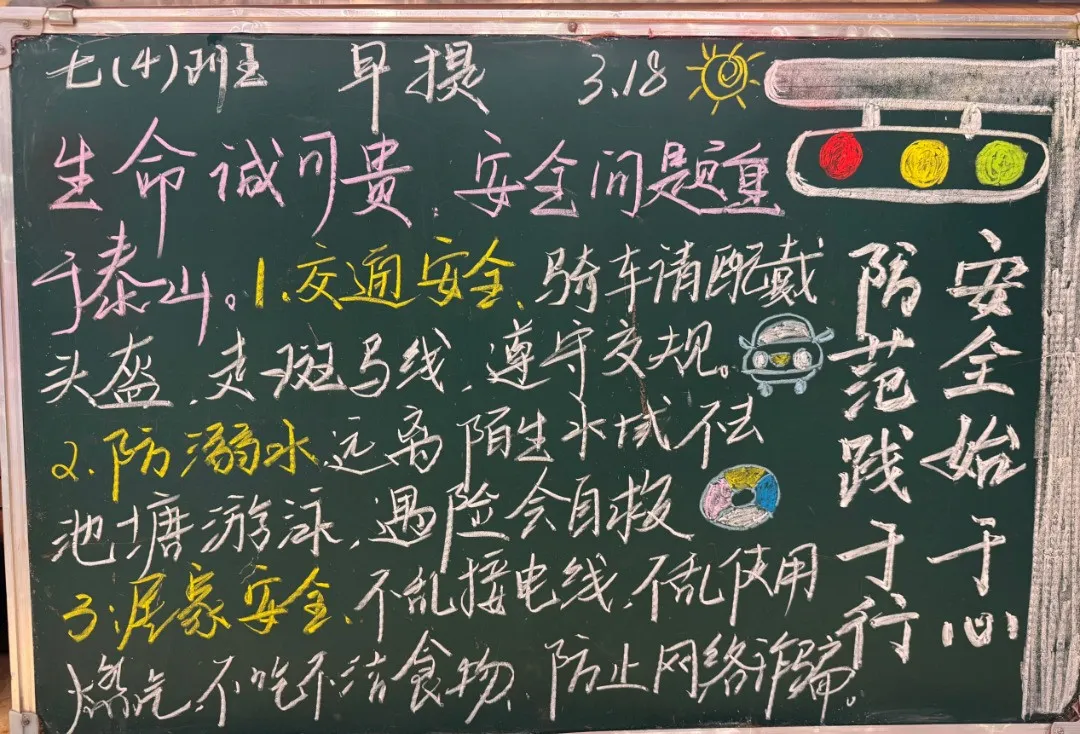 七(4)班 早提 3.18
生命诚可贵,安全问题重
于泰山。1.交通安全、骑车请配戴
头盔,走斑马线,遵守交规。
2.防溺水 远离陌生水域 不去
池塘游泳,遇险会自救
3.居家安全、不乱接电线,不乱使用
燃气,不吃不洁食物、防止网络诈骗。
安全始于心
防范践于行